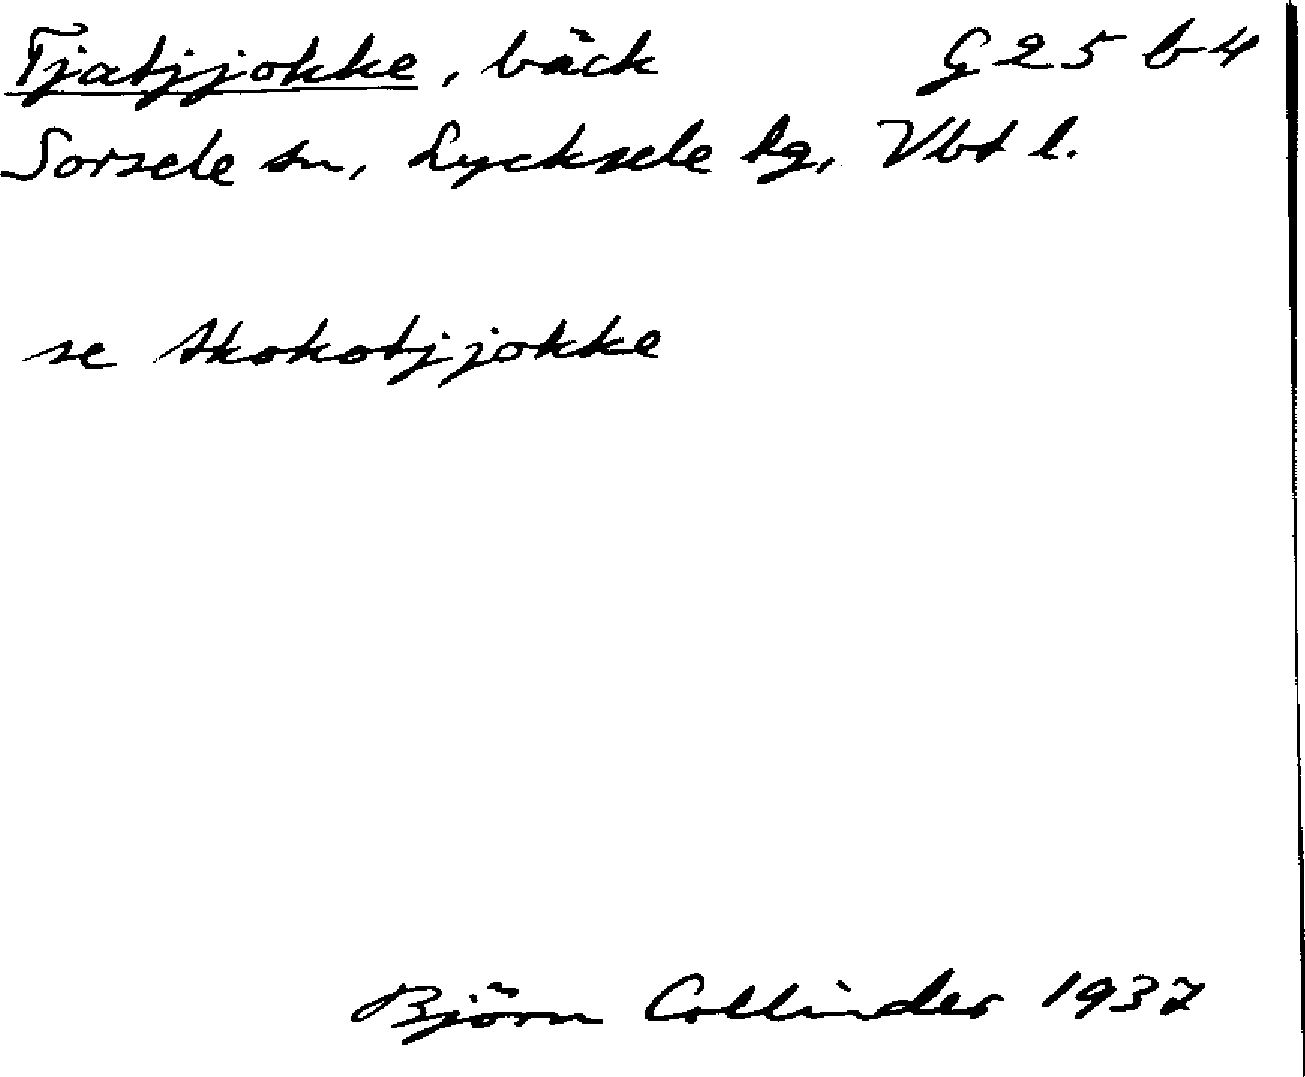 Tjatjjokke, bäck G 25 b 4
Sorsele sn, Lycksele lg, Vbt l.
se Skokotjjokke
Björn Collinder 1937